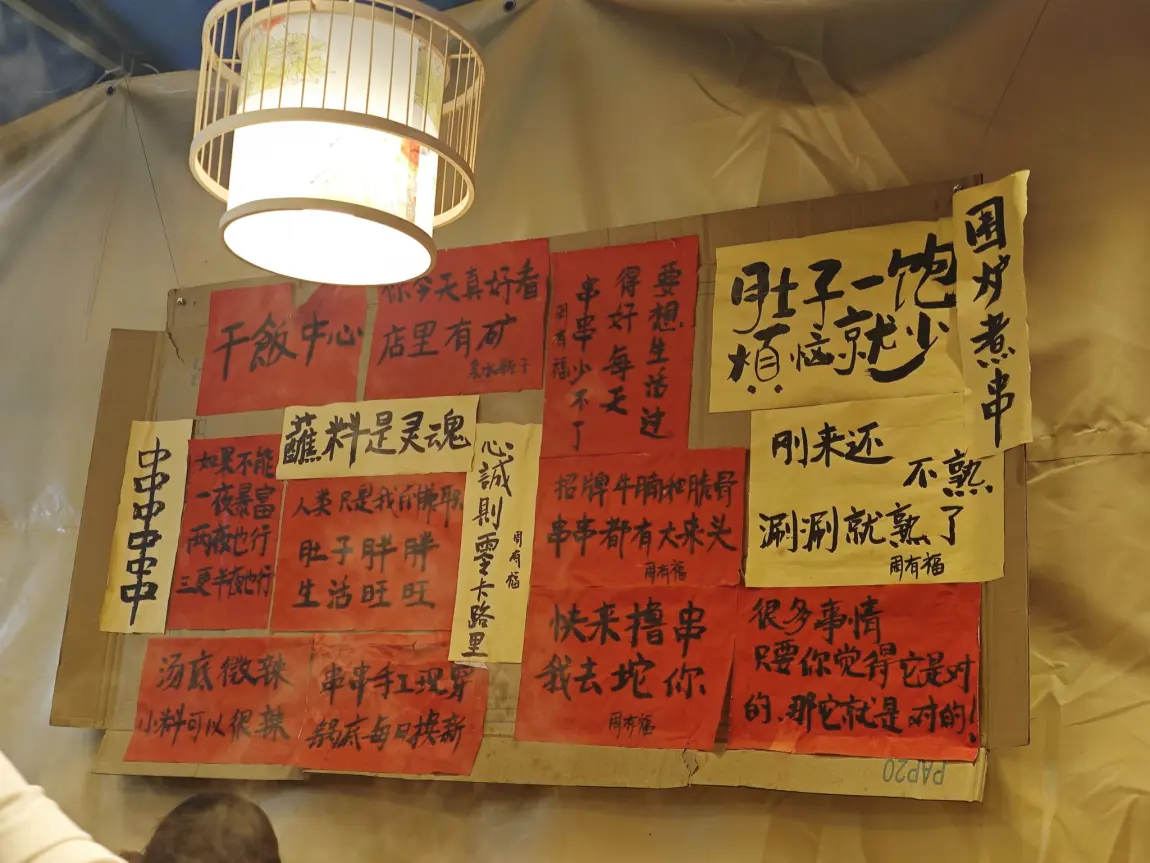 干飯中心
你今天真好看
店里有矿
要想生活过
得好每天
串串少不了
周有福
肚子一饱
烦恼就少
围炉煮串
蘸料是灵魂
串串串串
如果不能
一夜暴富
两夜也行
三更半夜也行
人类只是我的赚取
肚子胖胖
生活旺旺
心誠則零卡路里
周有福
招牌牛腩和脆骨
串串都有大来头
周有福
刚来还
不熟
涮涮就熟了
周有福
汤底微辣
小料可以很辣
串串手工现穿
锅底每日换新
快来撸串
我去坨你
周有福
很多事情
只要你觉得它是对
的.那它就是对的!
PAP20